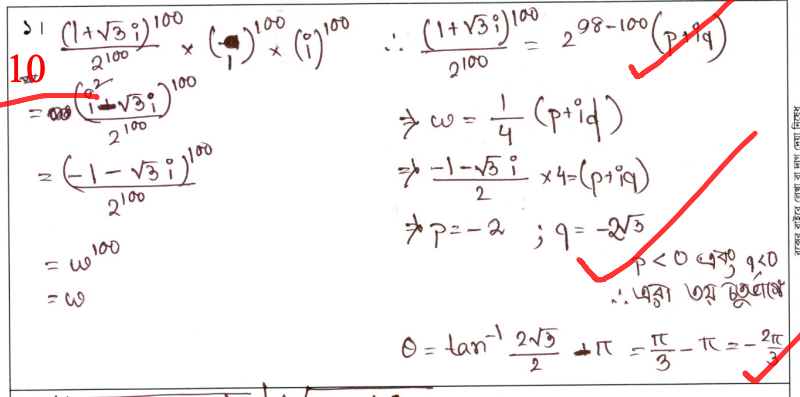 ১।
(1+√3i)^100 / 2^100 × ( /i)^100 × (i)^100
10
= (i² - √3i)^100 / 2^100
= (-1 - √3i)^100 / 2^100
= ω^100
= ω
∴ (1+√3i)^100 / 2^100 = 2^98-100 (p+iq)
⇒ ω = 1/4 (p+iq)
⇒ -1-√3i / 2 ×4=(p+iq)
⇒ p=-2 ; q = -2√3
p<0 এবং q<0
∴ এরা ৩য় চতুর্ভাগে
θ = tan^-1 2√3/2 - π = π/3 - π = -2π/3